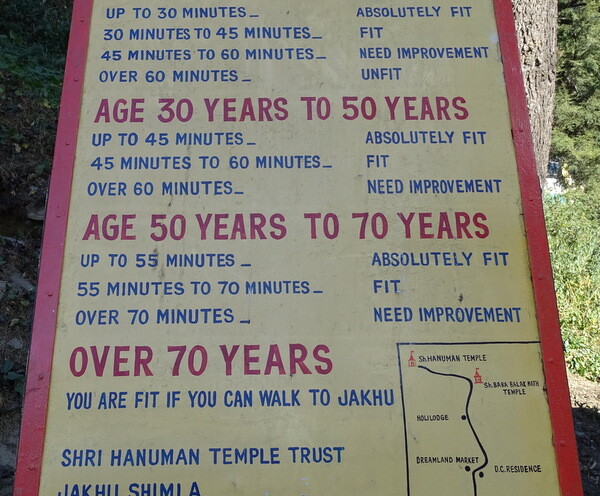 UP TO 30 MINUTES_ ABSOLUTELY FIT
30 MINUTES TO 45 MINUTES_ FIT
45 MINUTES TO 60 MINUTES_ NEED IMPROVEMENT
OVER 60 MINUTES_ UNFIT
AGE 30 YEARS TO 50 YEARS
UP TO 45 MINUTES_ ABSOLUTELY FIT
45 MINUTES TO 60 MINUTES_ FIT
OVER 60 MINUTES_ NEED IMPROVEMENT
AGE 50 YEARS TO 70 YEARS
UP TO 55 MINUTES_ ABSOLUTELY FIT
55 MINUTES TO 70 MINUTES_ FIT
OVER 70 MINUTES_ NEED IMPROVEMENT
OVER 70 YEARS
YOU ARE FIT IF YOU CAN WALK TO JAKHU
SHRI HANUMAN TEMPLE TRUST
JAKHU SHIMLA
Sh.HANUMAN TEMPLE
Sh.BABA BALAK NATH
TEMPLE
HOLILODGE
DREAMLAND MARKET
D.C. RESIDENCE